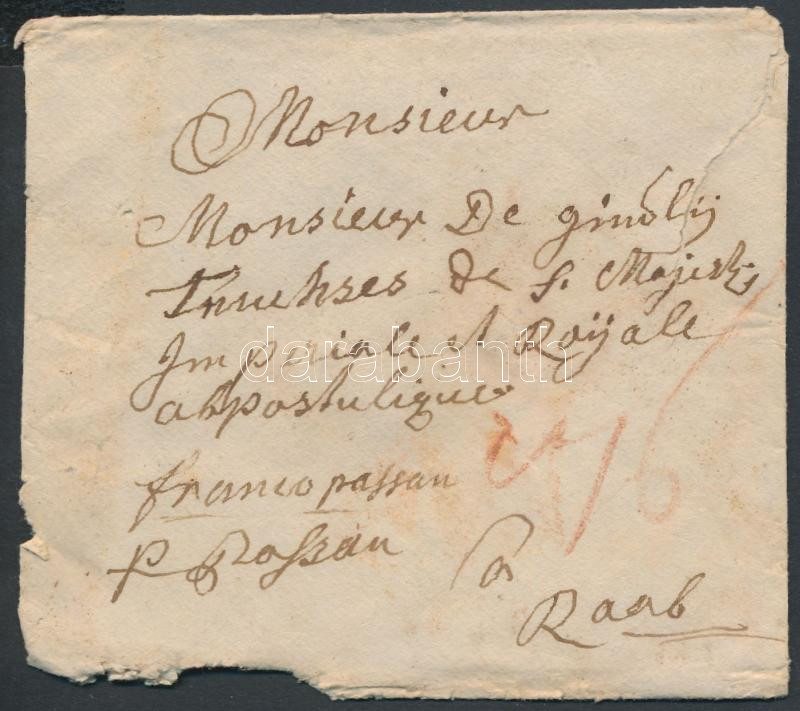 Monsieur
Monsieur De ginölÿ
Truchses de S. Majesté
Imperiale et Roÿale
abpostulique
franco passau
p Passau
a
Raab
darabanth